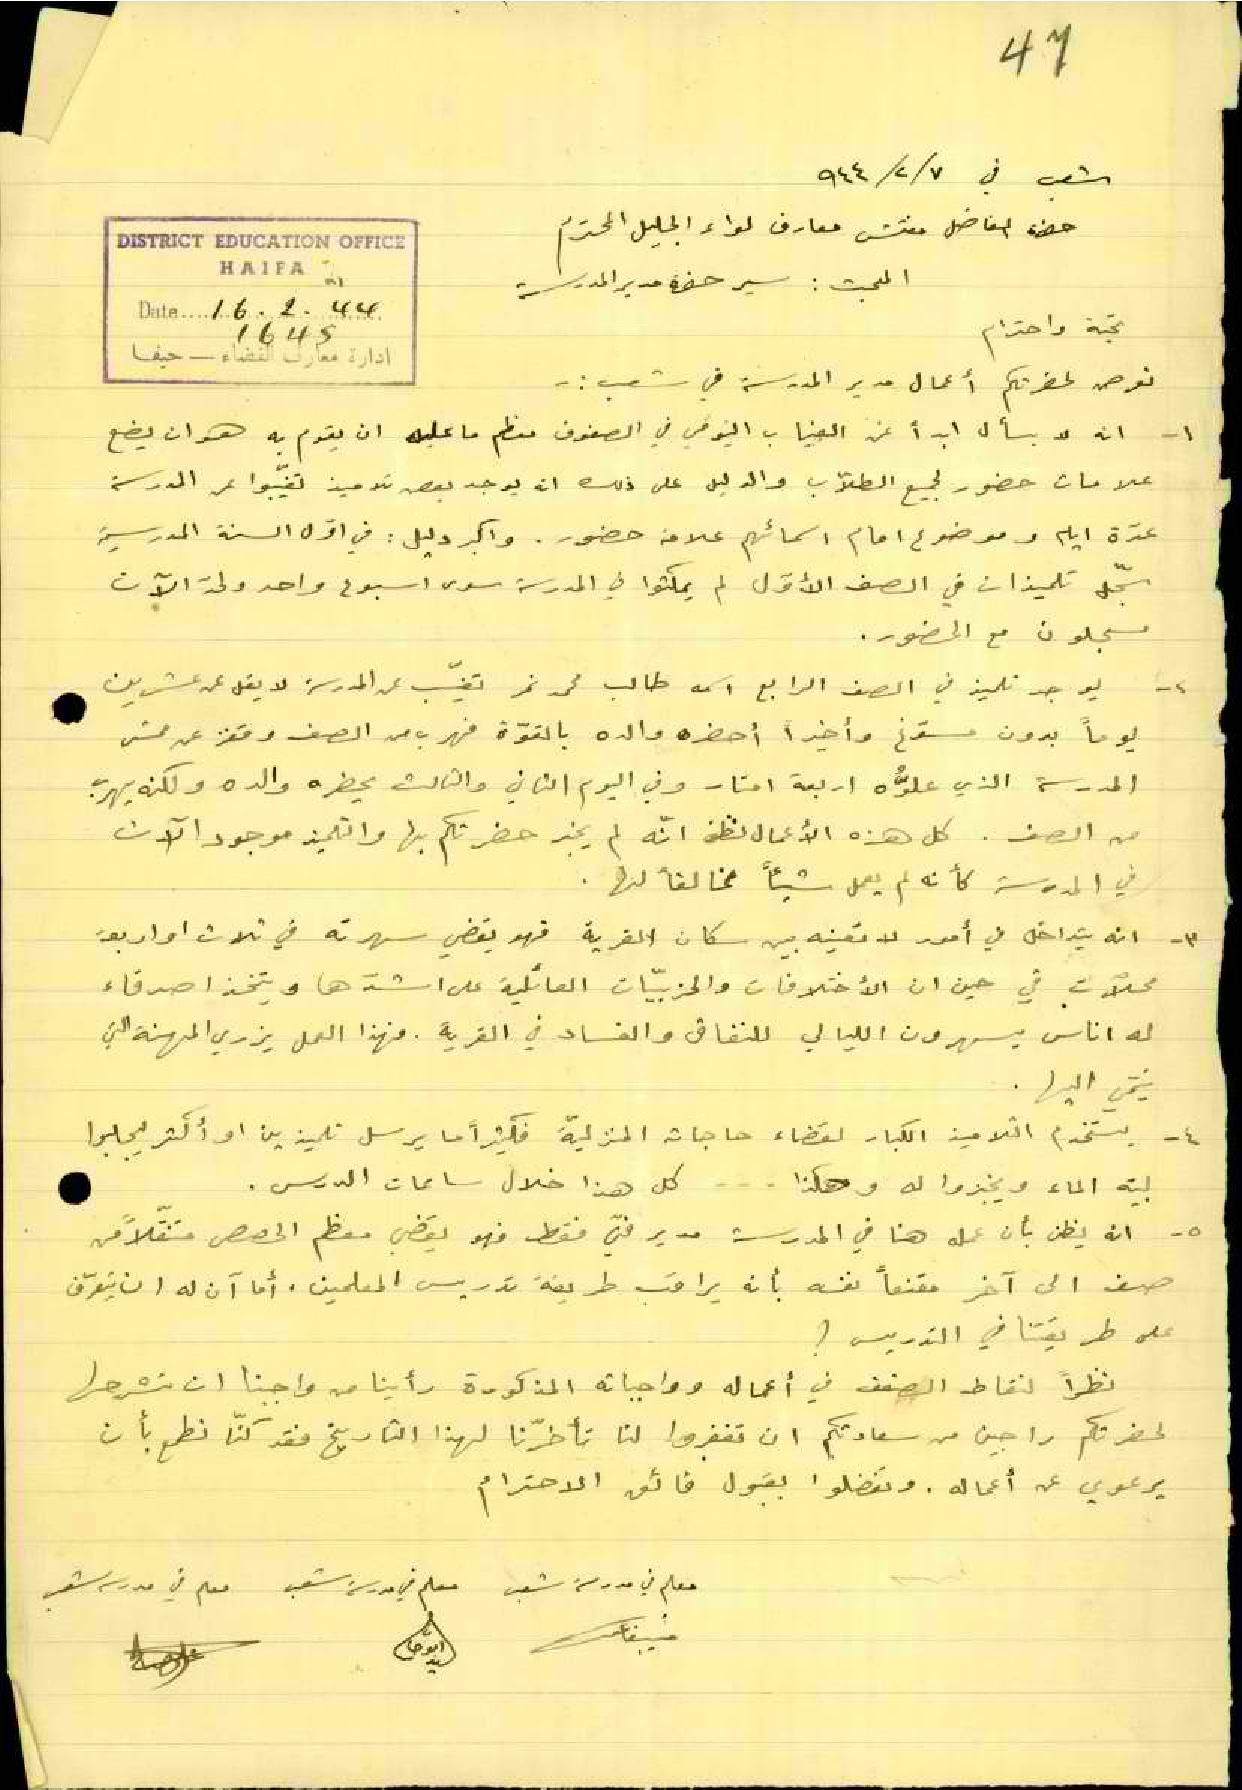 47
شعب في ٧/٢/٩٤٤
حضرة الفاضل مفتش معارف لواء الجليل المحترم
DISTRICT EDUCATION OFFICE
HAIFA
Date....16.2.44
1645
ادارة معارف القضاء — حيفا
المبحث : سير حضرة مدير المدرسة
تحية واحترام
نعرض لحضرتكم أعمال مدير المدرسة في شعب :-
١- انه لا يسأل ابداً عن الغياب اليومي في الصفوف معظم ما عليه ان يقوم به هو ان يضع
علامات حضور لجميع الطلاّب والدليل على ذلك انه يوجد بعض تلاميذ تغيّبوا عن المدرسة
عدّة ايام وموضوع امام اسمائهم علامة حضور . واكبر دليل : في اوّل السنة المدرسية
سجّل تلميذان في الصف الأوّل لم يمكثوا في المدرسة سوى اسبوع واحد ولحد الآن
مسجلون مع الحضور .
٢- يوجد تلميذ في الصف الرابع اسمه طالب محمد نمر تغيّب عن المدرسة لا يقل عن عشرين
يوماً بدون مسوّغ وأخيراً أحضره والده بالقوّة فهرب من الصف وقفز عن ممشى
المدرسة الذي علوُّه اربعة امتار وفي اليوم الثاني والثالث يحضره والده ولكنه يهرب
من الصف . كل هذه الأعمال نظن انّه لم يخبر حضرتكم بها والتلميذ موجود الآن
في المدرسة كأنه لم يعمل شيئاً مخالفاً لها .
٣- انه يتداخل في أمور لا تعنيه بين سكان القرية فهو يقضي سهرته في ثلاث او اربعة
محلاّت في حين ان الأختلافات والحزبيّات العائلية على اشدّها ويتخذ اصدقاء
له اناس يسهرون الليالي للنفاق والفساد في القرية . فهذا العمل يزري المهنة التي
ينتمي اليها .
٤- يستخدم التلاميذ الكبار لقضاء حاجاته المنزليّة فكثيراً ما يرسل تلميذين او أكثر ليجلبوا
لبيته الماء ويخبزوا له وهكذا ---- كل هذا خلال ساعات الدرس .
٥- انه يظن بأن عمله هنا في المدرسة مدير فنّي فقط فهو يقضي معظم الحصص متنقّلاً من
صف الى آخر مقنعاً نفسه بأنه يراقب طريقة تدريس المعلمين . أما آن له ان يتعرّف
على طريقتنا في التدريس ؟
نظراً لنقاط الضعف في أعماله وواجباته المذكورة رأينا من واجبنا ان نشرحها
لحضرتكم راجين من سعادتكم ان تغفروا لنا تأخرّنا لهذا التاريخ فقد كنّا نطمع بأن
يرعوي عن أعماله . وتفضلوا بقبول فائق الاحترام
معلم في مدرسة شعب معلم في مدرسة شعب معلم في مدرسة شعب